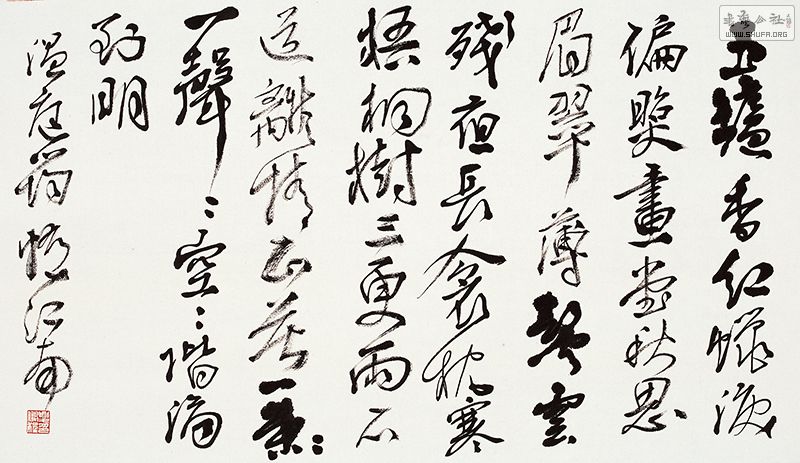 玉鑪香紅蠟淚
偏照畫堂秋思
眉翠薄鬢雲
殘夜長衾枕寒
梧桐樹三更雨不
道離情正苦一葉〻
一聲〻空〻階滴
到明
温庭筠憶江南
公社
WWW.SHUFA.ORG